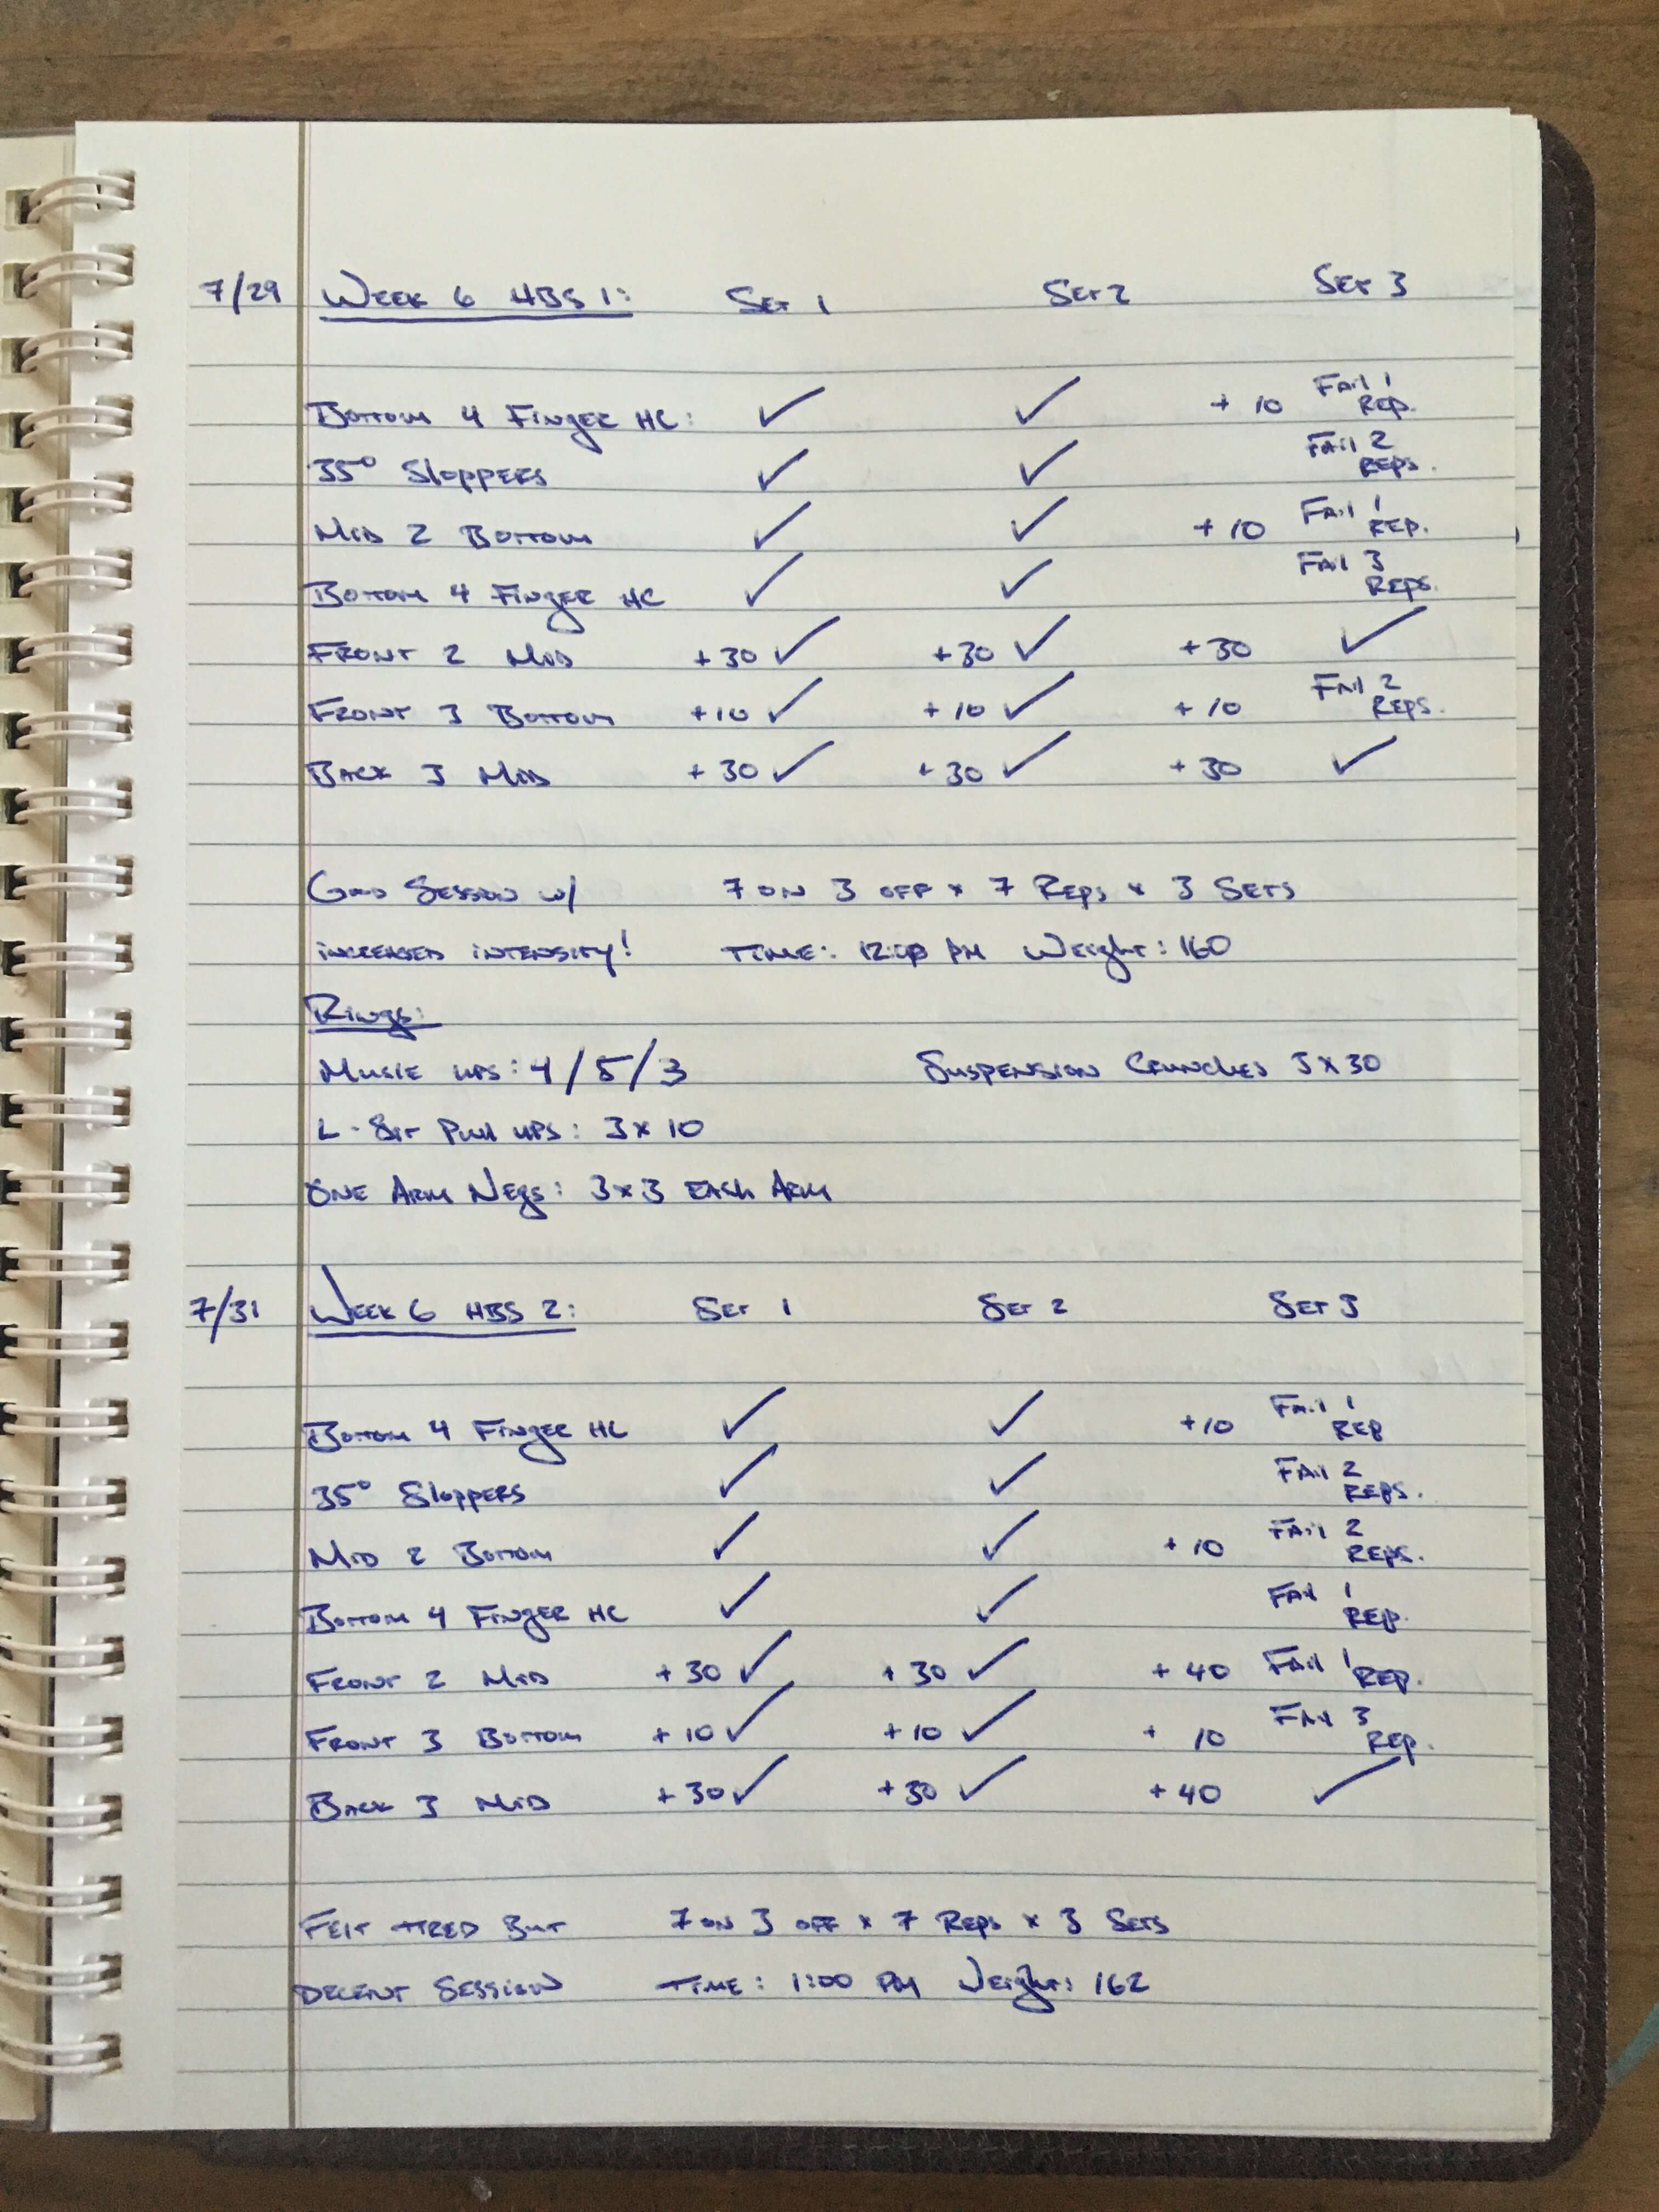 7/29 Week 6 HBS 1: Set 1 Set 2 Set 3
Bottom 4 Finger HC: ✓ ✓ + 10 Fail 1 Rep.
35° Sloppers ✓ ✓ Fail 2 Reps.
Mid 2 Bottom ✓ ✓ + 10 Fail 1 Rep.
Bottom 4 Finger HC ✓ ✓ Fail 3 Reps.
Front 2 Mid +30 ✓ +30 ✓ +30 ✓
Front 3 Bottom +10 ✓ +10 ✓ +10 Fail 2 Reps.
Back 3 Mid +30 ✓ +30 ✓ +30 ✓
Good Session w/ 7 on 3 off x 7 Reps x 3 Sets
increased intensity! Time: PM Weight: 160
Rings:
Muscle ups: 4/5/3 Suspension Crunches 3x30
L-Sit Pull ups: 3x10
One Arm Negs: 3x3 Each Arm
7/31 Week 6 HBS 2: Set 1 Set 2 Set 3
Bottom 4 Finger HC ✓ ✓ +10 Fail 1 Rep
35° Sloppers ✓ ✓ Fail 2 Reps.
Mid 2 Bottom ✓ ✓ +10 Fail 2 Reps.
Bottom 4 Finger HC ✓ ✓ Fail 1 Rep.
Front 2 Mid +30 ✓ +30 ✓ +40 Fail 1 Rep.
Front 3 Bottom +10 ✓ +10 ✓ + 10 Fail 3 Rep.
Back 3 Mid +30 ✓ +30 ✓ +40 ✓
Felt tired But 7 on 3 off x 7 Reps x 3 Sets
Decent Session Time: 1:00 PM Weight: 162